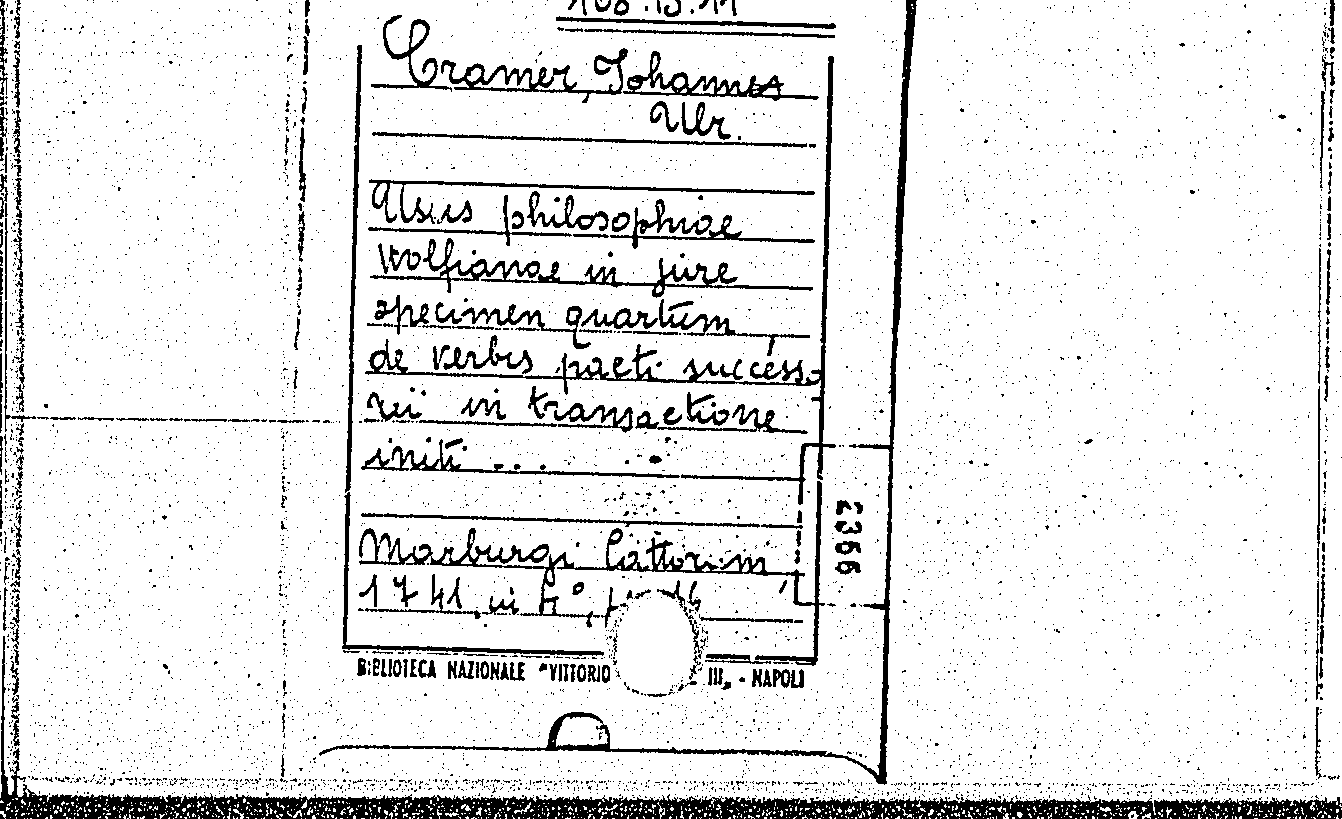 Cramer, Johannes
Ulr.
Usus philosophiae
Wolfianae in jure
specimen quartum,
de verbis pacti successo
rii in transactione
initi ...
Marburgi Cattorum,
1741, in 4°,
BIBLIOTECA NAZIONALE "VITTORIO III„ - NAPOLI
2366